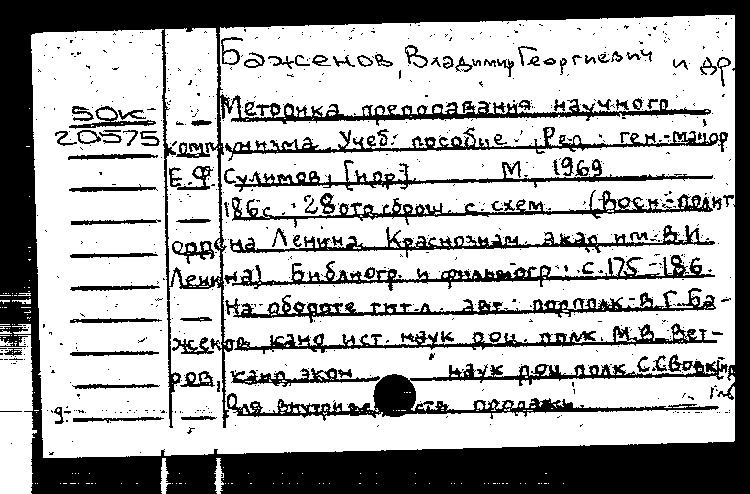 Баженов, Владимир Георгиевич и др.
50к-
20575
Методика преподавания научного
коммунизма. Учеб. пособие. [Ред. ген.-майор
Е.Ф. Сулимов, [и др.]. М., 1969
186 с.; 28 отд. брош. с схем. (Воен.-полит.
ордена Ленина, Краснознам. акад. им. В.И.
Ленина). Библиогр. и фильмогр.: с. 175-186.
На обороте тит. л. авт.: подполк. В.Г. Ба-
женов, канд. ист. наук доц. полк. М.В. Вет-
ров, канд. экон. наук доц. полк. С.С.
Для продажи
9-